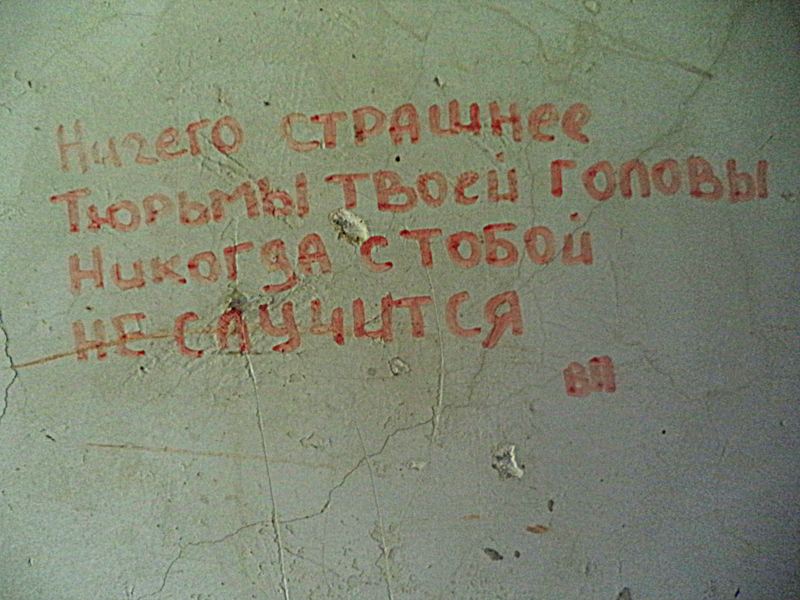 Ничего СТРАШНее
Тюрьмы ТВОей ГОЛОВЫ
Никогда с ТОБОЙ
НЕ СЛУЧИТСЯ
ВП